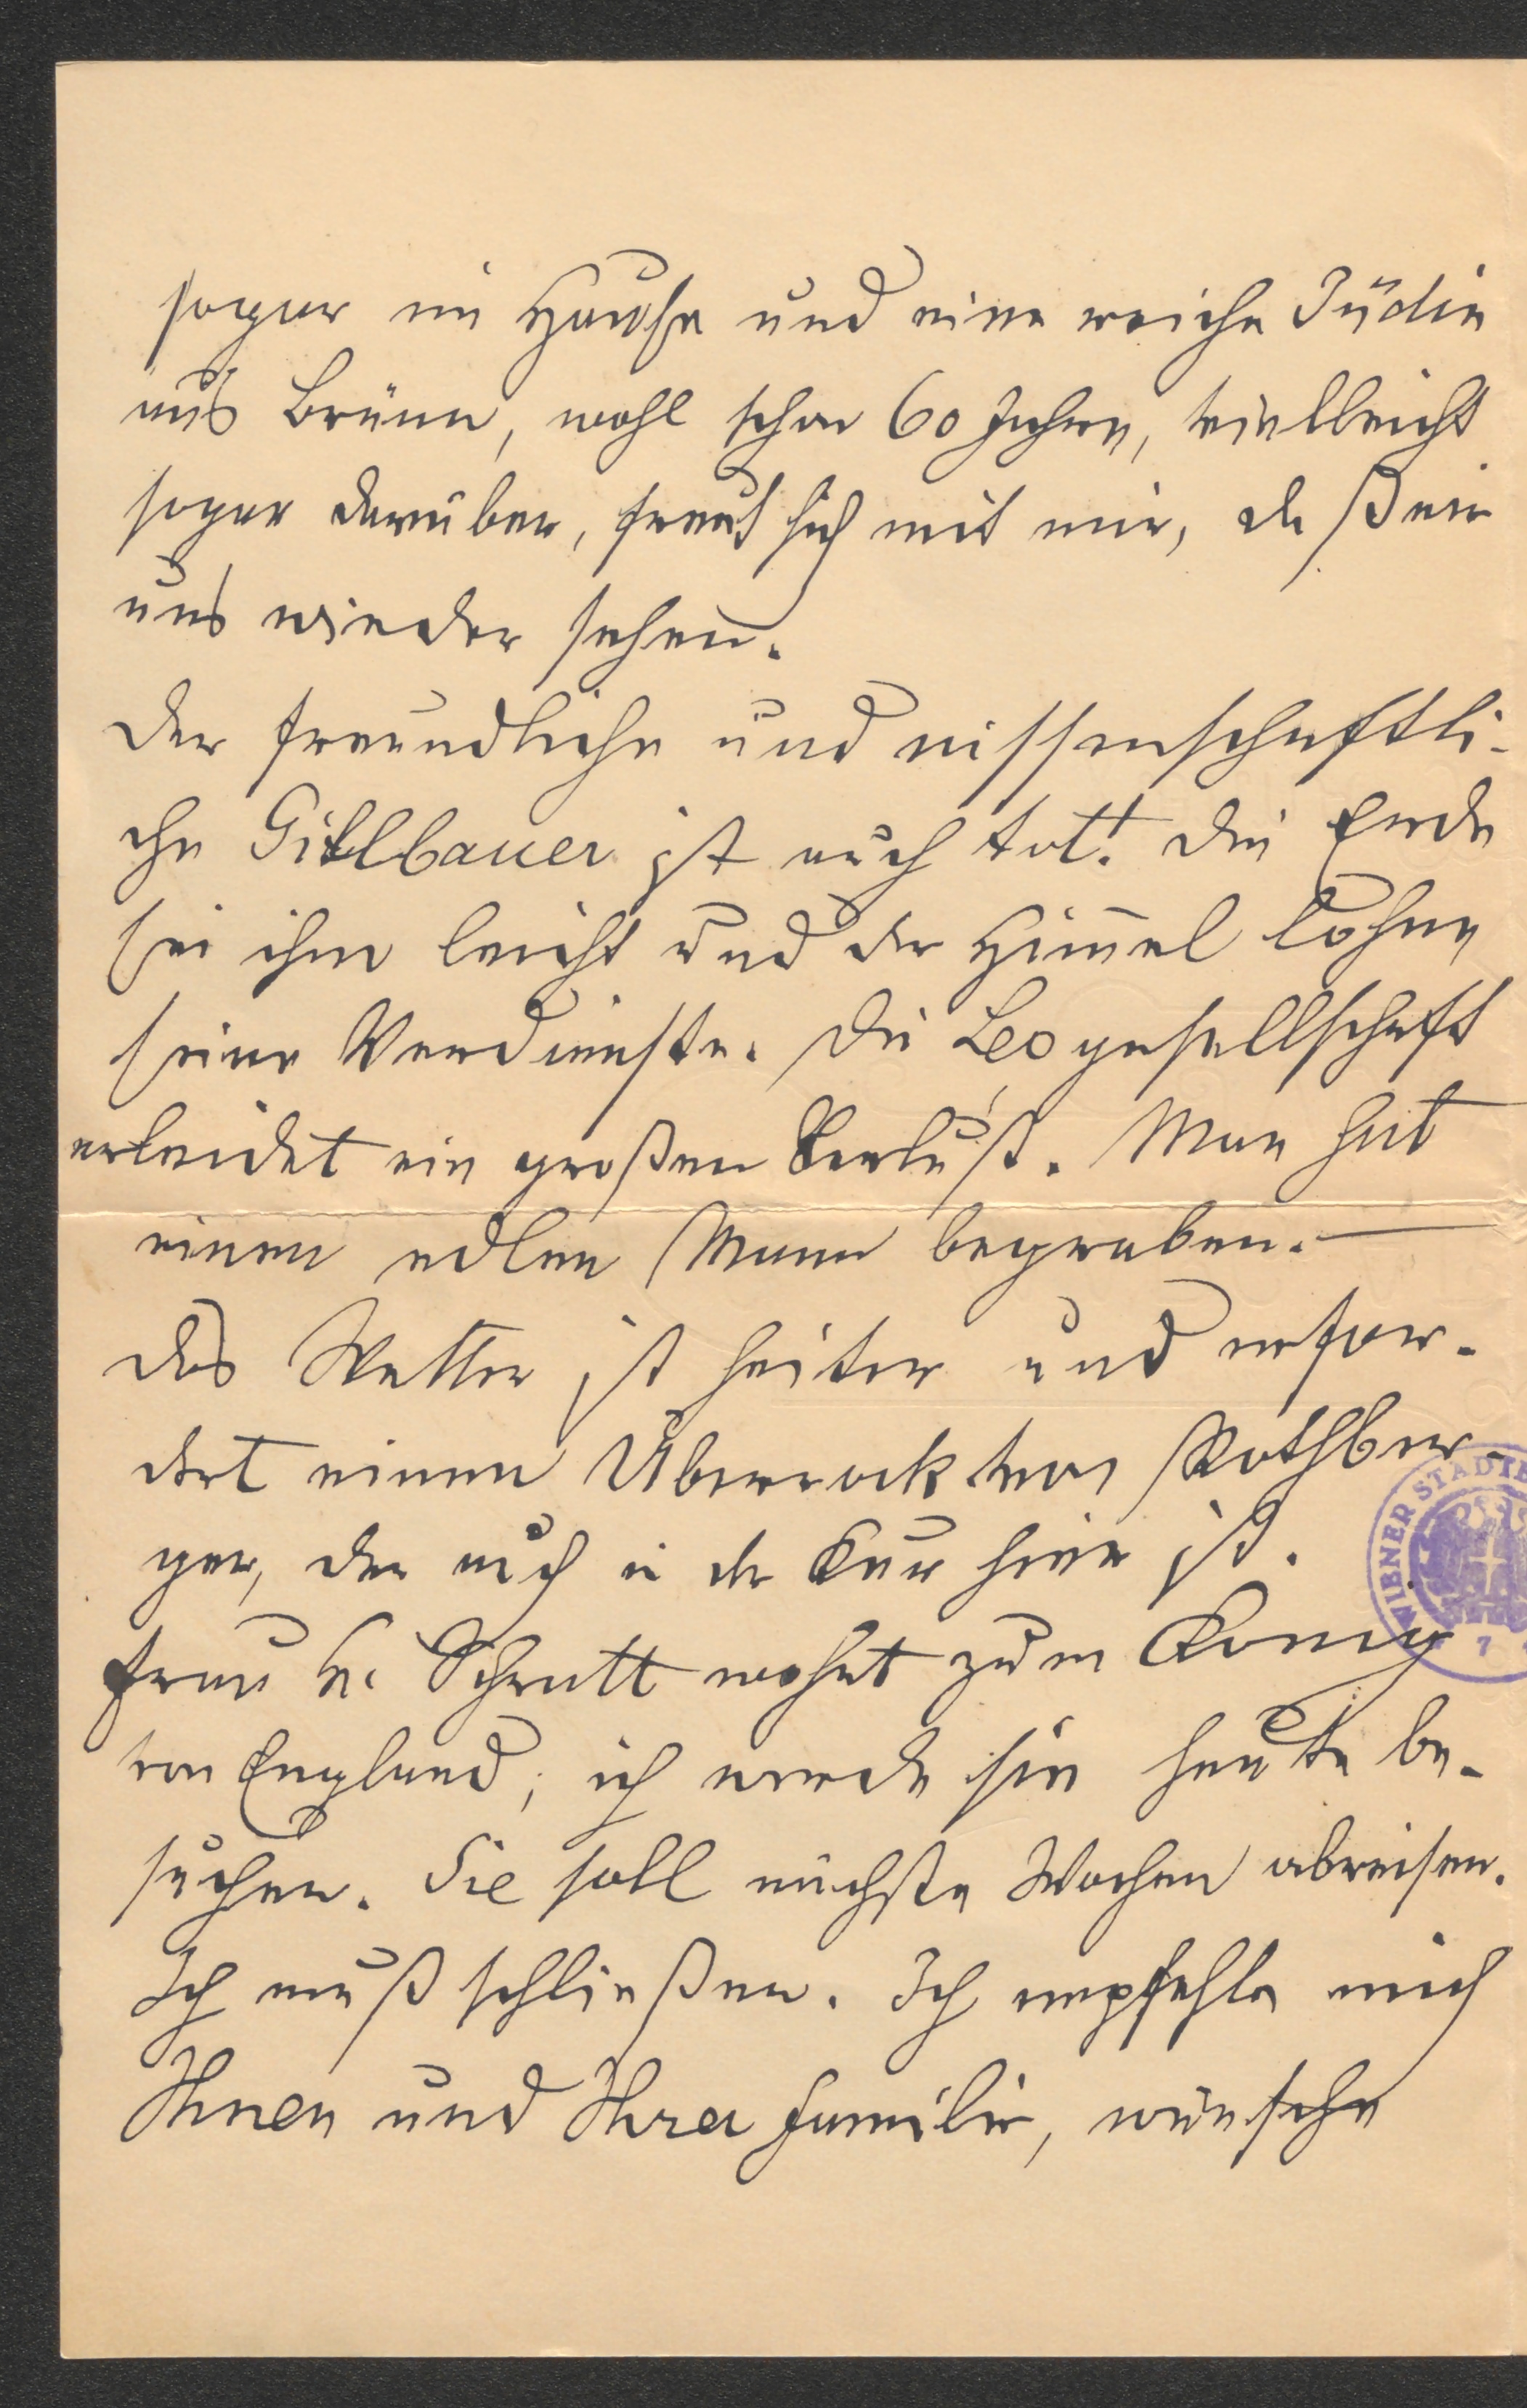 sogar im Hause und eine reiche Jüdin
aus Brünn, wohl schon 60 Jahre, vielleicht
sogar darüber, freut sich mit mir, daß wir
uns wieder sehen.
Der freundliche und wissenschaftli-
che Gitlbauer ist auch tot! Die Erde
sei ihm leicht und der Him̅el lohne
seine Verdienste. Die Leogesellschaft
erleidet ein großen Verlust. Man hat
einen edlen Mann begraben. —
Das Wetter ist heiter und erfor-
dert einen Überrock von Rothber-
ger, der auch in der Kur hier ist.
Frau K. Schratt wohnt zum König
von England; ich werde sie heute be-
suchen. Sie soll nächste Wochen abreisen.
Ich muß schließen. Ich empfehle mich
Ihnen und Ihrer Familie, wünsche
WIENER STADTB
7